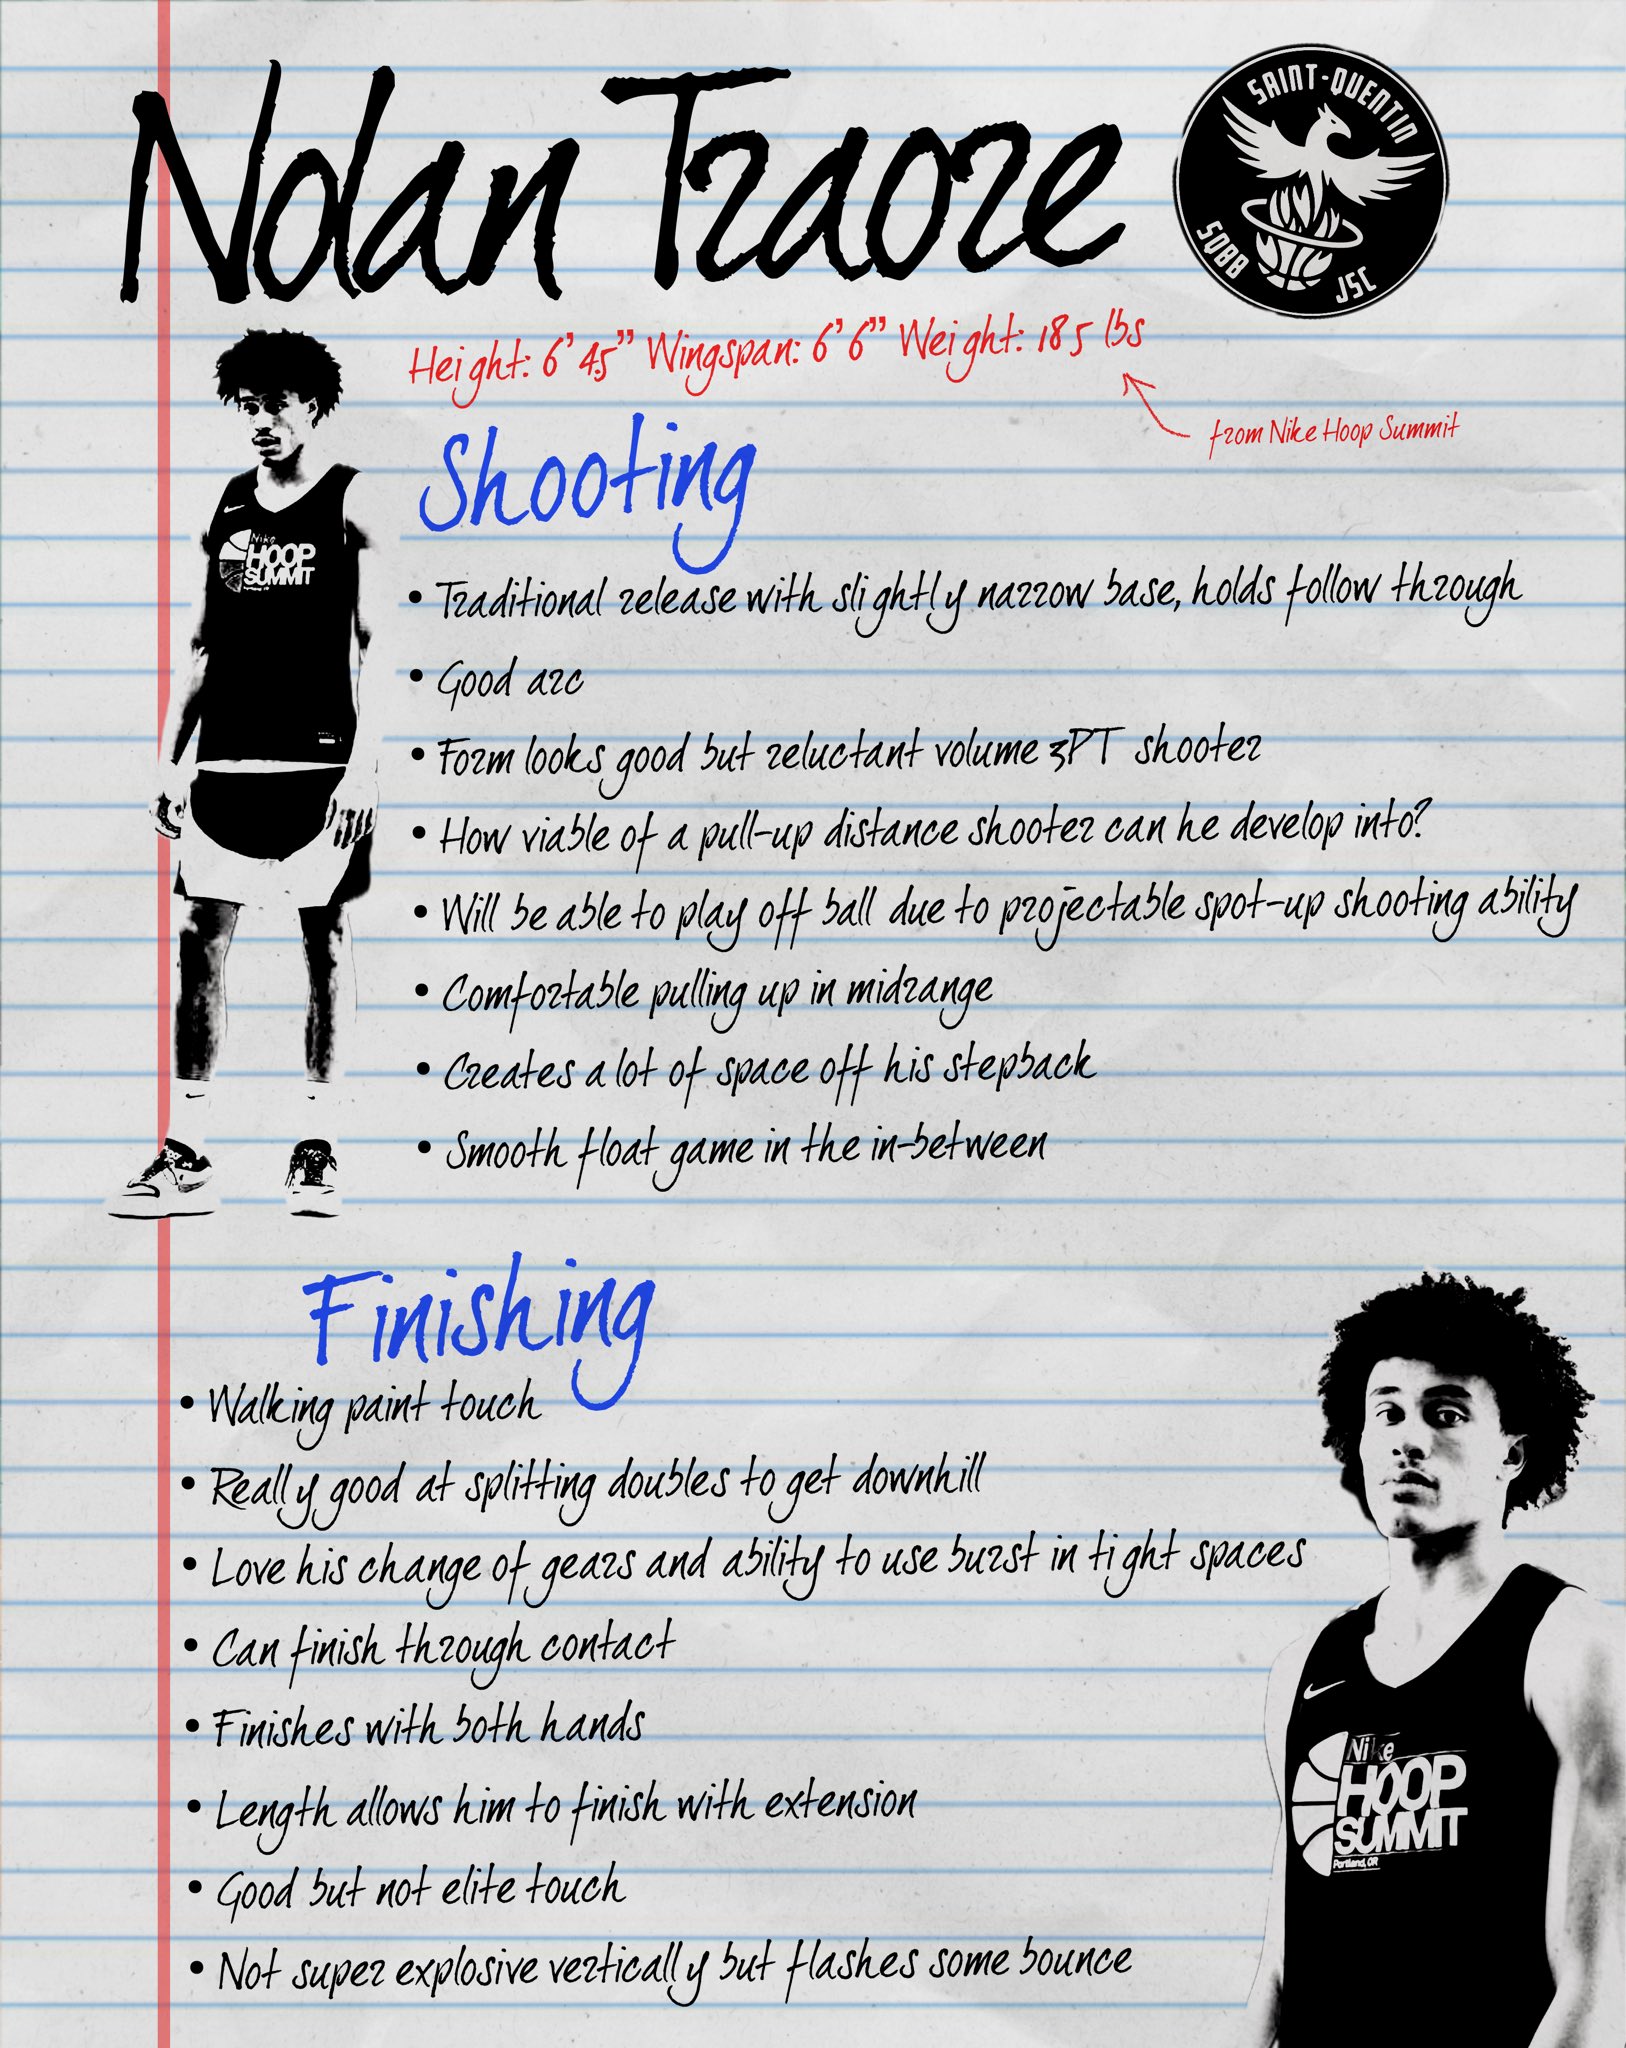 Nolan Traore
SAINT-QUENTIN
SQBB
JSC
Height: 6'4.5" Wingspan: 6'6" Weight: 185 lbs
from Nike Hoop Summit
Shooting
• Traditional release with slightly narrow base, holds follow through
• Good arc
• Form looks good but reluctant volume 3PT shooter
• How viable of a pull-up distance shooter can he develop into?
• Will be able to play off ball due to projectable spot-up shooting ability
• Comfortable pulling up in midrange
• Creates a lot of space off his stepback
• Smooth float game in the in-between
Nike
HOOP
SUMMIT
Finishing
• Walking paint touch
• Really good at splitting doubles to get downhill
• Love his change of gears and ability to use burst in tight spaces
• Can finish through contact
• Finishes with both hands
• Length allows him to finish with extension
• Good but not elite touch
• Not super explosive vertically but flashes some bounce
Nike
HOOP
SUMMIT
Portland, OR